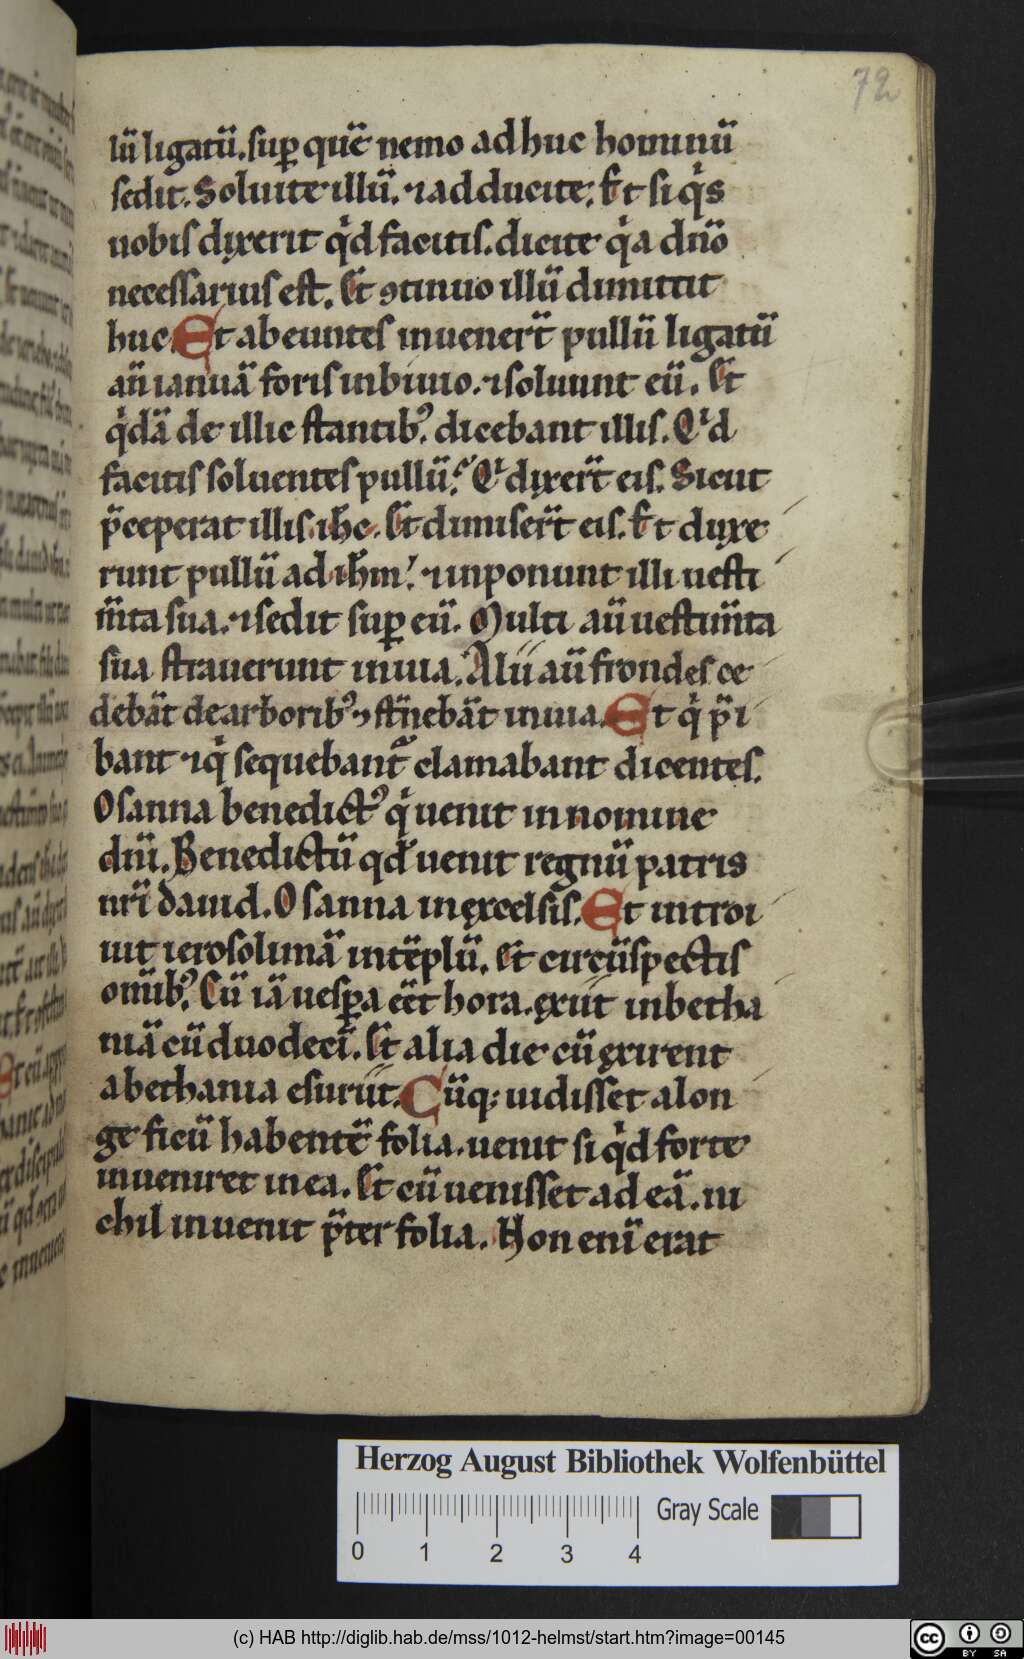 72
lū ligatū. sup̱ quē nemo adhuc hominū
sedit. Soluite illū. ⁊ adducite. Et si qͥs
uobis dixerit qͥd facitis. dicite qͥa dn̄o
necessarius est. Et ꝯtinuo illū dimittit
huc. Et abeuntes inuener̄t pullū ligatū
an̄ ianuā foris in biuio. ⁊ soluunt eū. Et
qͥdā de illic stantibꝰ. dicebant illis. Qͥd
facitis soluentes pullū? Qͥ dixer̄t eis. Sicut
p̄ceperat illis ih̄c. Et dimiser̄t eis. Et duxe
runt pullū ad ih̄m. ⁊ inponunt illi uesti
m̄ta sua. ⁊ sedit sup̱ eū. Multi aū uestim̄ta
sua strauerunt in uia. Alii aū frondes ce
debāt de arboribꝰ ⁊ st̄nebāt in uia. Et qͥ p̄i
bant ⁊ qͥ sequebant̄ clamabant dicentes.
Osanna benedictꝰ qͥ uenit in nomine
dn̄i. Benedictū qd̄ uenit regnū patris
nr̄i dauid. Osanna in excelsis. Et introi
uit ierosolimā in tēplū. Et circūspectis
om̄ibꝰ. Cū iā uesp̱a eēt hora. exiit in betha
niā cū duodecī. Et alia die cū exirent
a bethania esuriit. Cūq; uidisset a lon
ge ficū habentē folia. uenit si qͥd forte
inueniret in ea. Et cū uenisset ad eā. ni
chil inuenit p̄ter folia. Non enī erat
Herzog August Bibliothek Wolfenbüttel
0 1 2 3 4 Gray Scale
(c) HAB http://diglib.hab.de/mss/1012-helmst/start.htm?image=00145
cc BY SA